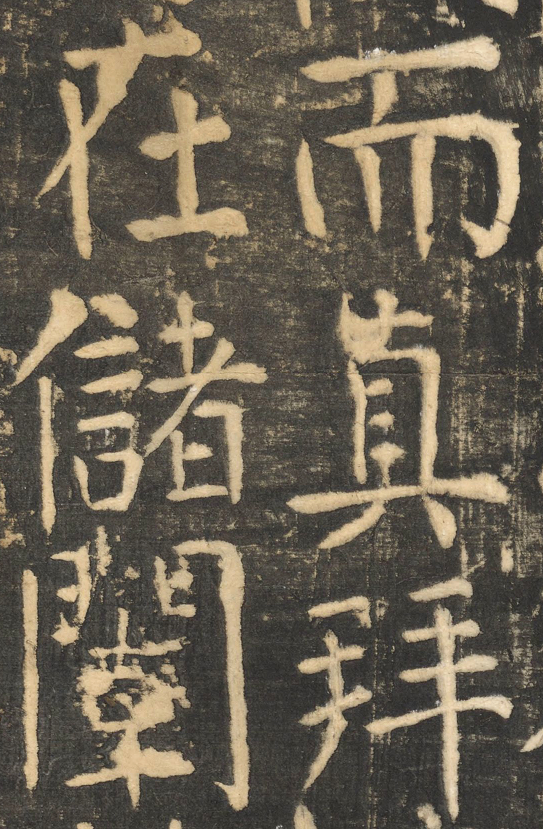 而真拜
在儲闈